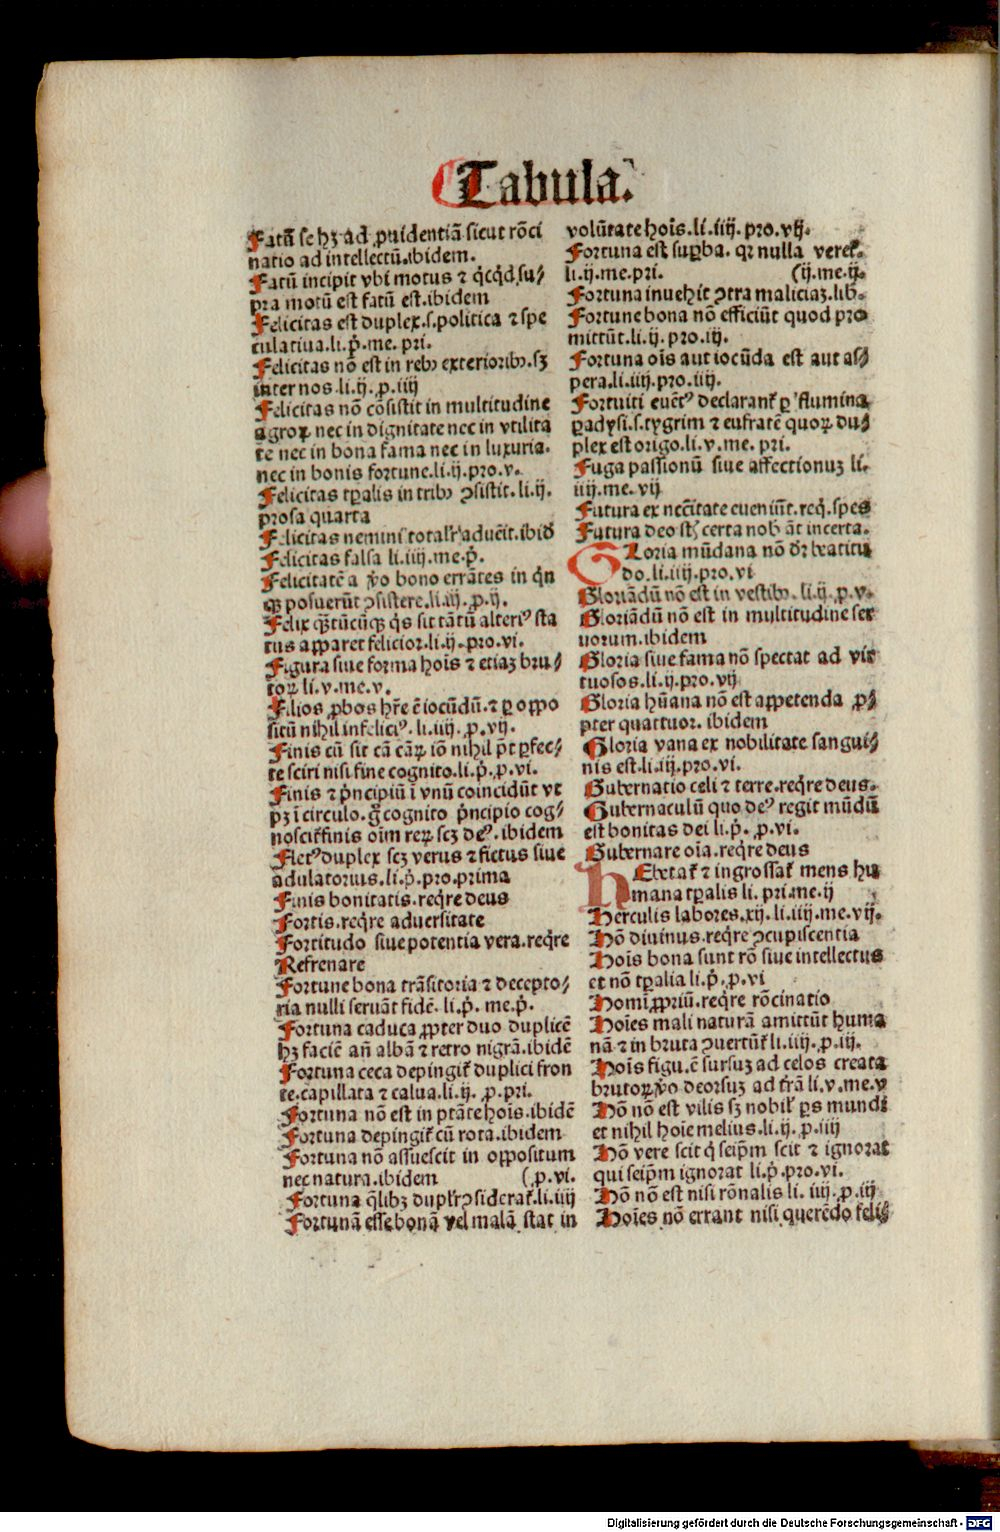 Tabula.
Fatũ se hꝫ ad ꝓuidentiã sicut rõci
natio ad intellectũ.ibidem.
Fatũ incipit vbi motus ⁊ q̃cq̃d su⸗
pra motũ est fatũ est.ibidem
Felicitas est duplex.s.politica ⁊ spe
culatiua.li.p̃.me. pri.
Felicitas nõ est in rebꝰ exterioribꝰ.sꝫ
inter nos.li.ij.ꝓ.iiij
Felicitas nõ cõsistit in multitudine
agroꝝ nec in dignitate nec in vtilita
te nec in bona fama nec in luxuria.
nec in bonis fortune.li.ij.pro.v.
Felicitas tꝑalis in tribꝰ ꝯsistit.li.ij.
prosa quarta
Felicitas nemini totalr̃ aduẽit.ibid
Felicitas falsa li.iiij.me.p̃.
Felicitatẽ a ṽo bono errãtes in q̃n
qꝫ posuerũt ꝯsistere.li.iij.ꝓ.ij.
Felix q̃tũcũqꝫ q̃s sit tãtũ alteriꝰ sta
tus apparet felicior.li.ij.pro.vi.
Figura siue forma hoĩs ⁊ etiaꝫ bru⸗
toꝝ li.v.me.v.
Filios ꝓbos hr̃e ẽ iocũdũ.⁊ ꝑ oppo
sitũ nihil infeliciꝰ.li.iiij.ꝓ.vij.
Finis cũ sit cã cãꝝ iõ nihil p̃t ꝑfec⸗
te sciri nisi fine cognito.li.p̃.ꝓ.vi.
Finis ⁊ p̃ncipiũ ĩ vnũ coincidũt vt
pꝫ ĩ circulo.g̃ cognito p̃ncipio cog⸗
noscit̃ finis oĩm reꝝ scꝫ deꝰ.ibidem
Fletꝰ duplex scꝫ verus ⁊ fictus siue
adulatorius.li.p̃.pro.prima
Finis bonitatis.req̃re deus
Fortis.req̃re aduersitate
Fortitudo siue potentia vera.req̃re
Refrenare
Fortune bona trãsitoria ⁊ decepto⸗
ria nulli seruãt fidẽ.li.p̃. me.p̃.
Fortuna caduca ꝓpter duo duplicẽ
hꝫ faciẽ añ albã ⁊ retro nigrã.ibidẽ
Fortuna ceca depingit̃ duplici fron
te.capillata ⁊ calua.li.ij. ꝓ.pri.
Fortuna nõ est in ptãte hoĩs.ibidẽ
Fortuna depingit̃ cũ rota.ibidem
Fortuna nõ assuescit in oppositum
nec natura.ibidem (ꝓ.vi.
Fortuna q̃libꝫ duplr̃ ꝯsiderat̃.li.iiij
Fortunã esse bonã vel malã stat in
volũtate hoĩs.li.iiij.pro.vij.
Fortuna est suꝑba. qꝛ nulla veret̃.
li.ij.me.pri. (ij.me.ij.
Fortuna inuehit ꝯtra maliciaꝫ.lib.
Fortune bona nõ efficiũt quod pro
mittũt.li.ij.pro.iij.
Fortuna oĩs aut iocũda est aut as⸗
pera.li.iiij.pro.iiij.
Fortuiti euẽtꝰ declarant̃ ꝑ flumina
ꝑadysi.s.tygrim ⁊ eufratẽ quoꝝ du⸗
plex est origo.li.v.me. pri.
Fuga passionũ siue affectionuꝫ li.
iiij.me. vij
Futura ex necẽitate eueniũt.req̃.spes
Futura deo st̃ certa nob̃ ãt incerta.
Gloria mũdana nõ dr̃ beatitu
do.li.iiij.pro.vi
Gloriãdũ nõ est in vestibꝰ.li.ij.ꝓ.v.
Gloriãdũ nõ est in multitudine ser
uorum.ibidem
Gloria siue fama nõ spectat ad vir
tuosos.li.ij.pro.vij
Gloria hũana nõ est appetenda ꝓ⸗
pter quattuor. ibidem
Gloria vana ex nobilitate sangui⸗
nis est.li.iij.pro.vi.
Gubernatio celi ⁊ terre.req̃re deus.
Gubernaculũ quo deꝰ regit mũdũ
est bonitas dei li.p̃. ꝓ.vi.
Gubernare oĩa.req̃re deus
Hebetat̃ ⁊ ingrossat̃ mens hu
mana tꝑalis li. pri.me.ij
Herculis labores.xij.li.iiij.me.vij.
Hõ diuinus.req̃re ꝯcupiscentia
Hoĩs bona sunt rõ siue intellectus
et nõ tꝑalia li.p̃.ꝓ.vi
Homĩ ꝓpriũ.req̃re rõcinatio
Hoĩes mali naturã amittũt huma
nã ⁊ in bruta ꝯuertũt̃ li.iiij.ꝓ.iij.
Hoĩs figu.ẽ sursuꝫ ad celos creata
brutoꝝ ṽo deorsuꝫ ad tr̃ã li.v.me.v
Hõ nõ est vilis sꝫ nobil̃ ꝑs mundi
et nihil hoĩe melius.li.ij.ꝓ.iiij
Hõ vere scit q̃ seip̃m scit ⁊ ignorat
qui seip̃m ignorat li.p̃.pro.vi.
Hõ nõ est nisi rõnalis li. iiij.ꝓ.iij
Hoĩes nõ errant nisi querẽdo feli⸗
Digitalisierung gefördert durch die Deutsche Forschungsgemeinschaft - DFG